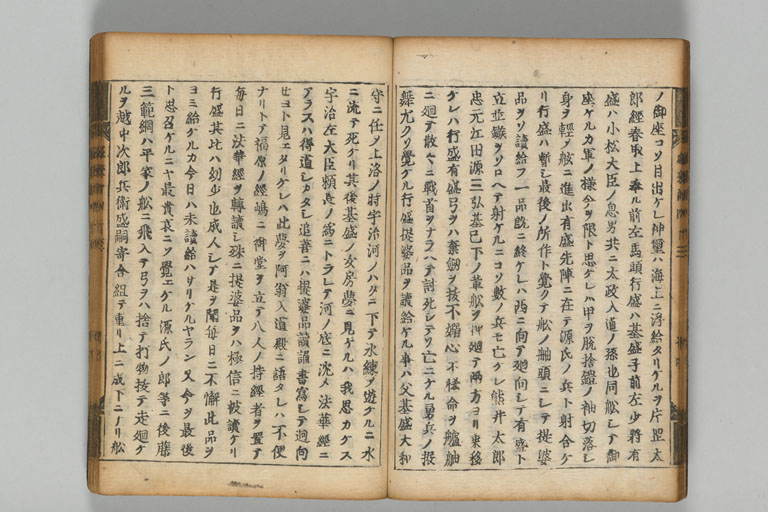 ノ御座コソ目出ケレ神璽ハ海上ニ浮給タリケルヲ片罡太
郎經春取上奉ル前左馬頭行盛ハ基盛子前左少將有
盛ハ小松大臣ノ息男共ニ太政入道ノ孫也同舩レテ御
座ケルカ軍ノ様今ヲ限ト思ケレハ甲ヲ脱捨鎧ノ袖切落レ
身ヲ輕ノ舩ニ進出有盛先陣ニ在テ源氏ノ兵ト射合ケ
リ行盛ハ暫レ最後ノ所作ト覺クテ舩ノ舳頭ニレテ提婆
品ヲソ讀給フ一品既ニ終ケレハ西ニ向テ廻向レテ有盛ト
立並鏃ヲソロヘテ射ケルニコソ數ノ兵モ亡ケレ熊井太郎
忠元江田源三弘基已下ノ軍舩ヲ押廻テ兩方ヨリ乗移
ケレハ行盛有盛弓ヲハ棄劔ヲ抜不惱心不怪命ヲ艫舳
ニ廻テ散々ニ戰首ヲナラヘテ討死レテソ亡ニケル勇兵ノ振
舞尤クソ覺ケル行盛提婆品ヲ讀給ケル事ハ父基盛大和
守ニ任ヲ上洛ノ時宇治河ノハタニ下テ水練ヲ遊ケルニ水
ニ流テ死ケリ其後基盛ノ女房夢ニ見ケルハ我思カケス
宇治左大臣頼長ノ爲ニトラレテ河ノ底ニ沈メ法華經ニ
アラスハ得道レカタレ追善ニハ提婆品讀誦書寫レテ廻向
セヨト見エタリケレハ此夢ヲ阿翁入道殿ニ語タレハ不便
ナリトテ福原ノ經嶋ニ御堂ヲ立テ八人ノ持經者ヲ置テ
毎日ニ法華經ヲ轉讀シ殊ニ提婆品ヲハ極信ニ被讀ケリ
行盛其比ハ幼少也成人レテ是ヲ聞毎日ニ不懈此品ヲ
ヨミ給ケルカ今日ハ未讀給ハサリケルヤラン又今ヲ最後
ト思召ケルニヤ最貴哀ニソ覺エケル源氏ノ郎等ニ後藤
三範綱ハ平家ノ舩ニ飛入テ弓ヲハ捨テ打物抜テ走廻ケ
ルヲ越中次郎兵衛盛嗣寄合組テ重リ上ニ成下ニナリ舩